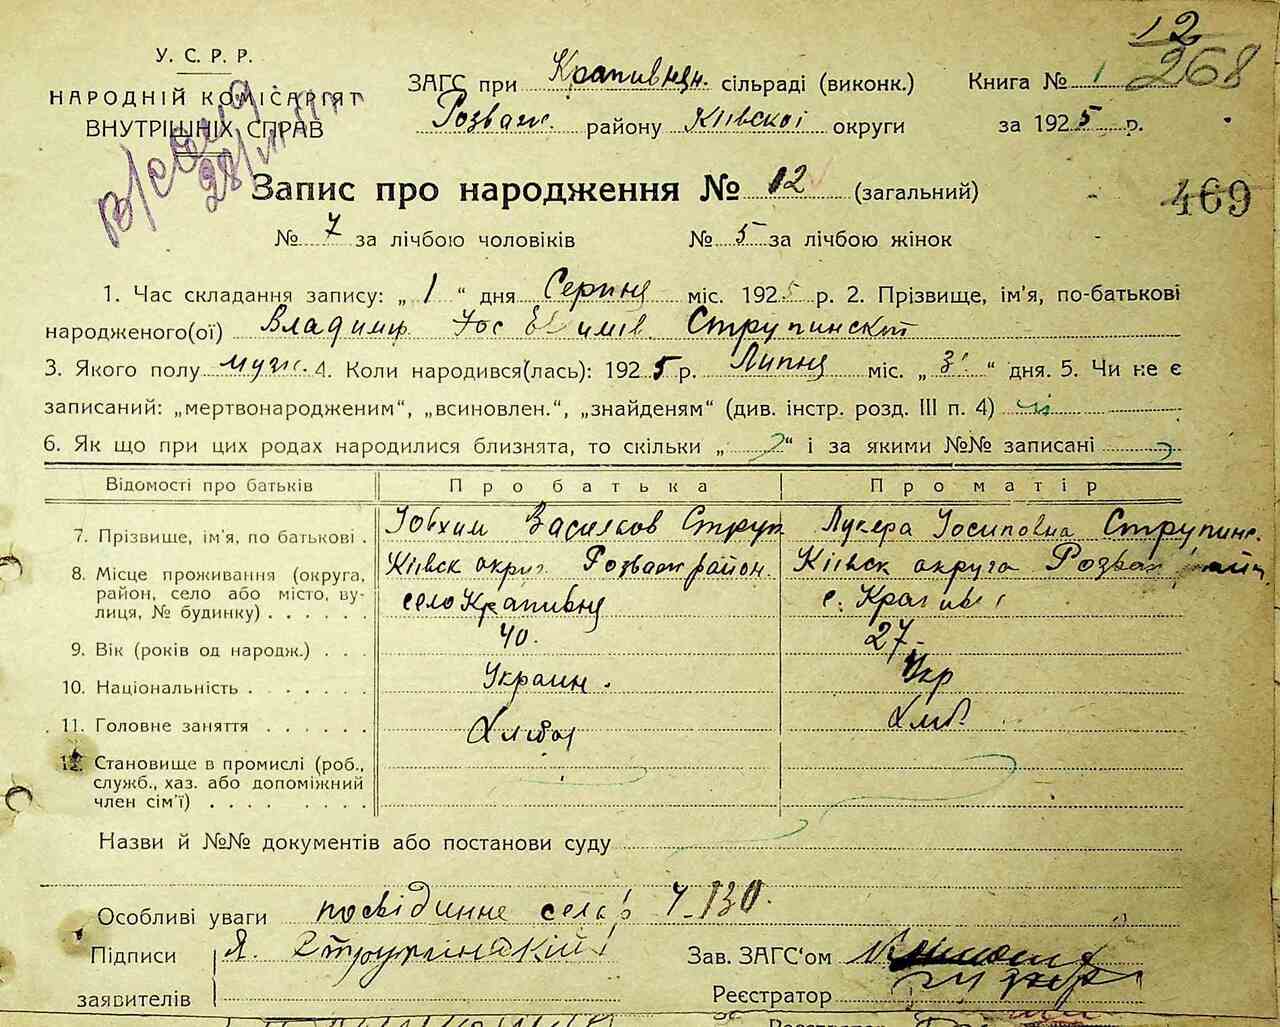 12
268
У. С. Р. Р.
НАРОДНІЙ КОМІСАРІЯТ
ВНУТРІШНІХ СПРАВ
ЗАГС при Крапивнян. сільраді (виконк.) Книга № 1
Розваж. району Київскої округи за 1925 р.
Запис про народження № 12 (загальний)
469
№ 7 за лічбою чоловіків № 5 за лічбою жінок
1. Час складання запису: „ 1 “ дня Серпня міс. 1925 р. 2. Прізвище, ім'я, по-батькові
народженого(ої) Владимир Струпинскій
3. Якого полу муж. 4. Коли народився(лась): 1925 р. Липня міс. „ 31 “ дня. 5. Чи не є
записаний: „мертвонародженим“, „всиновлен.“, „знайденям“ (див. інстр. розд. III п. 4) ні
6. Як що при цих родах народилися близнята, то скільки „ “ і за якими №№ записані
Відомості про батьків Про батька Про матір
7. Прізвище, ім'я, по батькові . Іовхим Васильов Струп Лукера Іосиповна Струпинс.
8. Місце проживання (округа, Київск округ. Розваж район. Київск округа Розваж район
район, село або місто, вулиця, № будинку) . . . . . . село Крапивня с. Крапивня
9. Вік (років од народж.) . . . 40. 27.
10. Національність . . . . . . . Украин. Укр
11. Головне заняття . . . . . . Хлібор Хліб.
12. Становище в промислі (роб.,
служб., хаз. або допоміжний
член сім'ї) . . . . . . . .
Назви й №№ документів або постанови суду
Особливі уваги посвідчине села 130.
Підписи Я. Струпинский Зав. ЗАГС'ом
заявителів Реєстратор